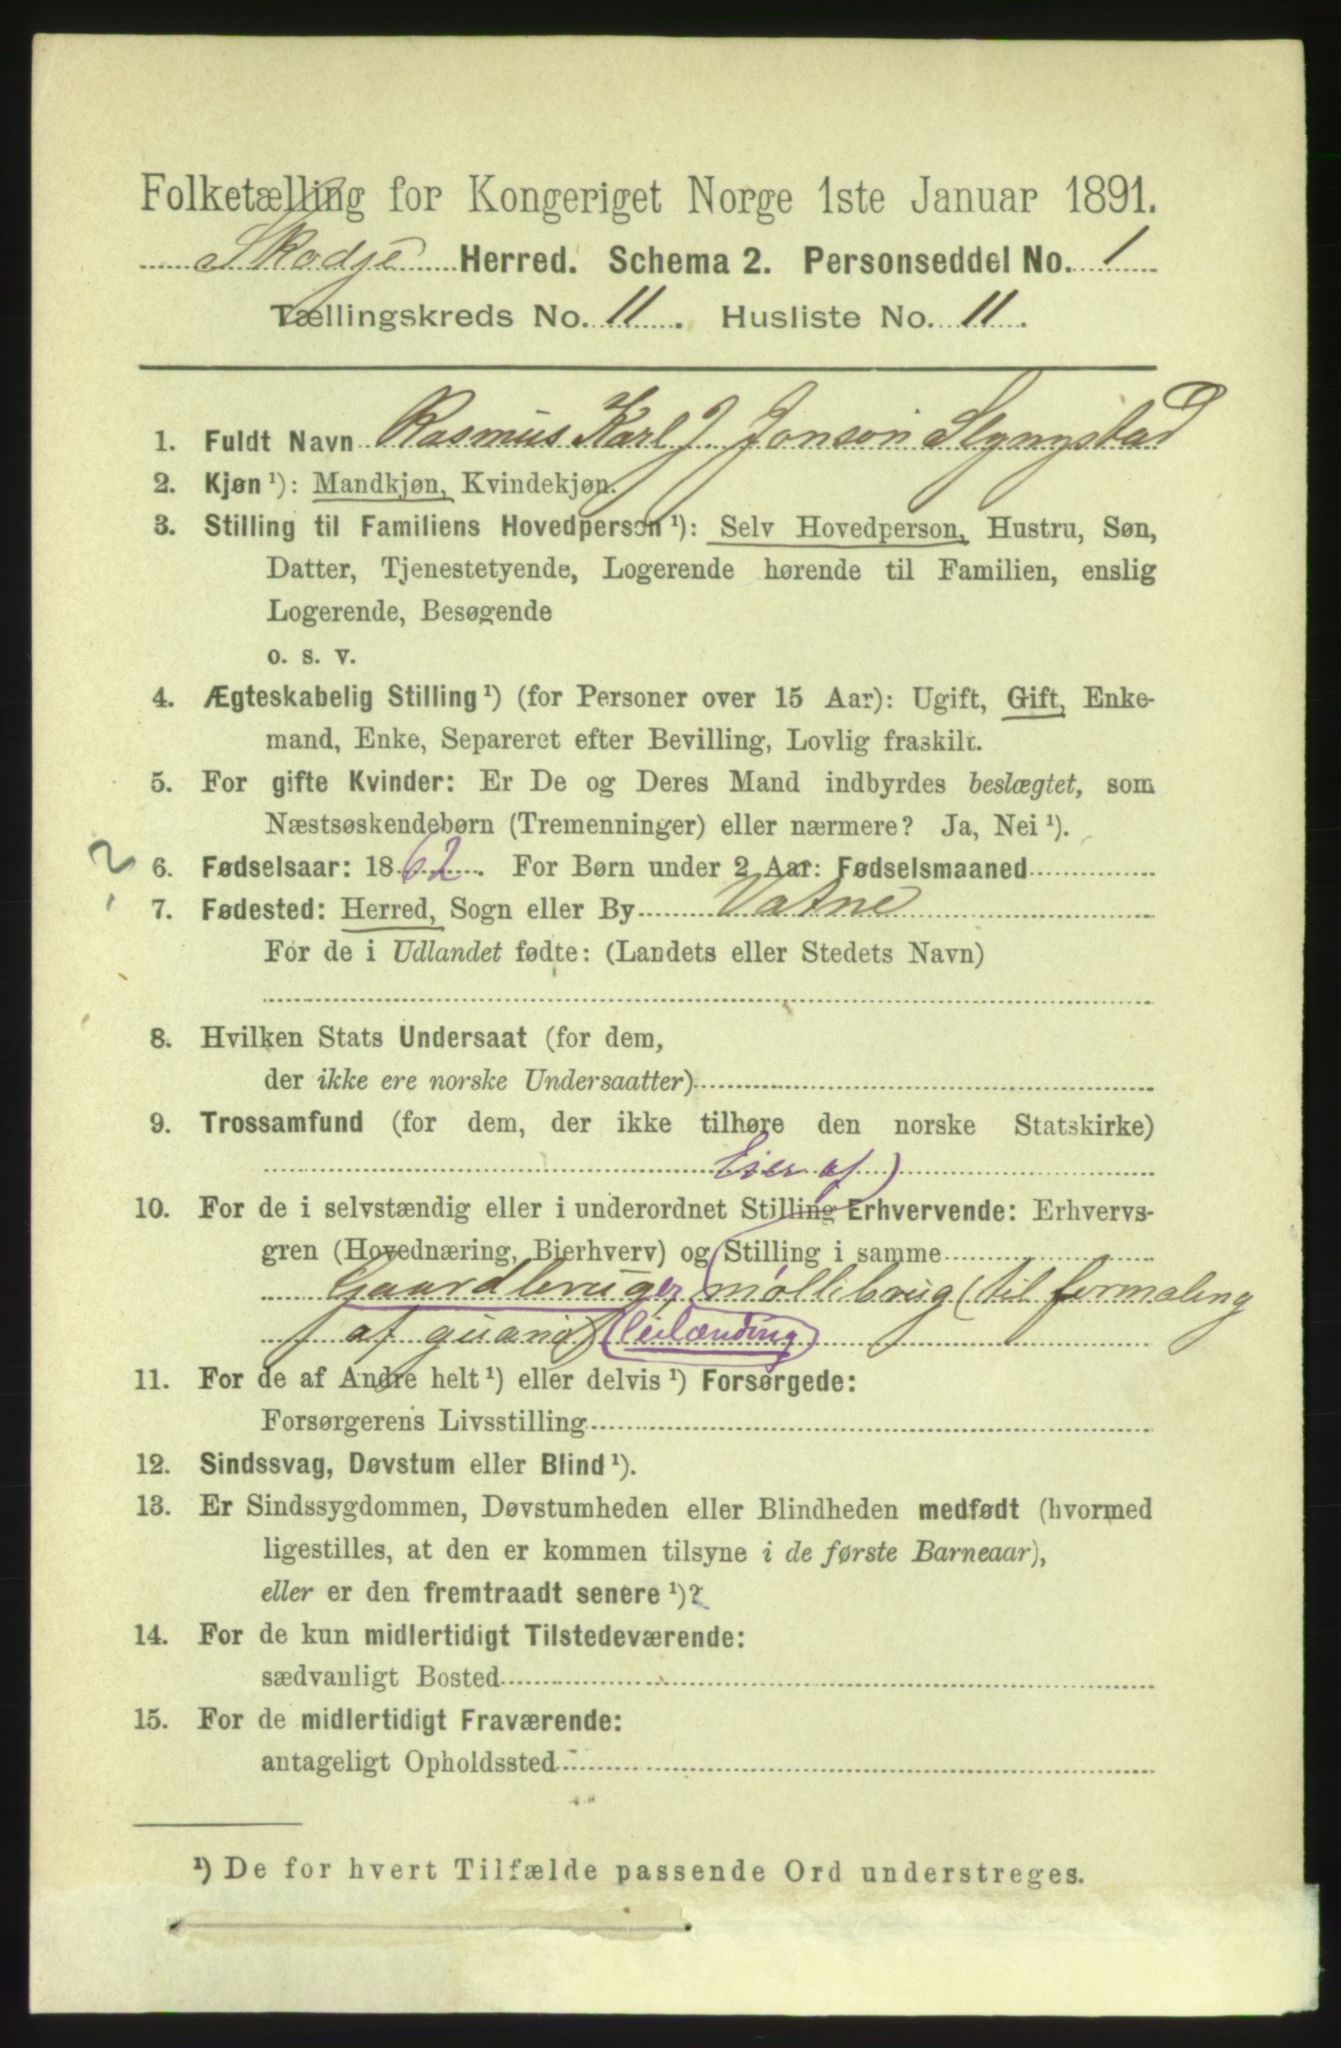 Folketælling for Kongeriget Norge 1ste Januar 1891.
Skodje Herred. Schema 2. Personseddel No. 1
Tællingskreds No. 11. Husliste No. 11.
1. Fuldt Navn Rasmus Karl J. Jonson Slyngstad
2. Kjøn ¹): Mandkjøn, Kvindekjøn.
3. Stilling til Familiens Hovedperson ¹): Selv Hovedperson, Hustru, Søn,
Datter, Tjenestetyende, Logerende hørende til Familien, enslig
Logerende, Besøgende
o. s. v.
4. Ægteskabelig Stilling ¹) (for Personer over 15 Aar): Ugift, Gift, Enke-
mand, Enke, Separeret efter Bevilling, Lovlig fraskilt.
5. For gifte Kvinder: Er De og Deres Mand indbyrdes beslægtet, som
Næstsøskendebørn (Tremenninger) eller nærmere? Ja, Nei ¹).
? 6. Fødselsaar: 1862. For Børn under 2 Aar: Fødselsmaaned
7. Fødested: Herred, Sogn eller By Vatne
For de i Udlandet fødte: (Landets eller Stedets Navn)
8. Hvilken Stats Undersaat (for dem,
der ikke ere norske Undersaatter)
9. Trossamfund (for dem, der ikke tilhøre den norske Statskirke)
Eier af
10. For de i selvstændig eller i underordnet Stilling Erhvervende: Erhvervs-
gren (Hovednæring, Bierhverv) og Stilling i samme
Gaardbruger, møllebrug (til formaling
af guano) leilænding
11. For de af Andre helt ¹) eller delvis ¹) Forsørgede:
Forsørgerens Livsstilling
12. Sindssvag, Døvstum eller Blind ¹).
13. Er Sindssygdommen, Døvstumheden eller Blindheden medfødt (hvormed
ligestilles, at den er kommen tilsyne i de første Barneaar),
eller er den fremtraadt senere ¹)?
14. For de kun midlertidigt Tilstedeværende:
sædvanligt Bosted
15. For de midlertidigt Fraværende:
antageligt Opholdssted
¹) De for hvert Tilfælde passende Ord understreges.